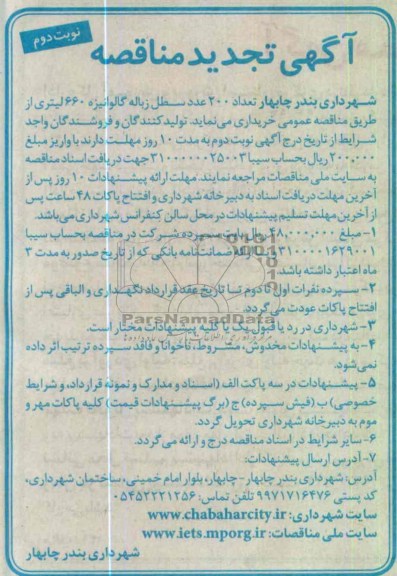 نوبت دوم
آگهی تجدید مناقصه
شهرداری بندر چابهار تعداد ۲۰۰ عدد سطل زباله گالوانیزه ۶۶۰ لیتری از
طریق مناقصه عمومی خریداری می‌نماید. تولیدکنندگان و فروشندگان واجد
شرایط از تاریخ درج آگهی نوبت دوم به مدت ۱۰ روز مهلت دارند با واریز مبلغ
۲۰۰,۰۰۰ ریال بحساب سیبا ۳۱۰۰۰۰۰۰۲۵۰۰۳ جهت دریافت اسناد مناقصه
به سایت ملی مناقصات مراجعه نمایند. مهلت ارائه پیشنهادات ۱۰ روز پس از
آخرین مهلت دریافت اسناد به دبیرخانه شهرداری و افتتاح پاکات ۴۸ ساعت پس
از آخرین مهلت تسلیم پیشنهادات در محل سالن کنفرانس شهرداری می‌باشد.
۱- مبلغ ۴۸,۰۰۰,۰۰۰ ریال بابت سپرده شرکت در مناقصه بحساب سیبا
۳۱۰۰۰۰۱۶۲۹۰۰۱ ضمانت‌نامه بانکی که از تاریخ صدور به مدت ۳
ماه اعتبار داشته باشد
۲- سپرده نفرات اول تا دوم تا تاریخ عقد قرارداد نگهداری و الباقی پس از
افتتاح پاکات عودت می‌گردد.
ParsNamadData
۳- شهرداری در رد یا قبول یک یا کلیه پیشنهادات مختار است.
۴- به پیشنهادات مخدوش، مشروط، ناخوانا و فاقد سپرده ترتیب اثر داده
نمی‌شود.
۵- پیشنهادات در سه پاکت الف (اسناد و مدارک و نمونه قرارداد، و شرایط
خصوصی) ب (فیش سپرده) ج (برگ پیشنهادات قیمت) کلیه پاکات مهر و
موم به دبیرخانه شهرداری تحویل گردد.
۶- سایر شرایط در اسناد مناقصه درج و ارائه می‌گردد.
۷- آدرس ارسال پیشنهادات:
آدرس: شهرداری بندر چابهار - چابهار، بلوار امام خمینی، ساختمان شهرداری،
کد پستی ۹۹۷۱۷۱۶۴۷۶ تلفن تماس: ۰۵۴۵۲۲۲۱۲۵۶
سایت شهرداری: www.chabaharcity.ir
سایت ملی مناقصات: www.iets.mporg.ir
شهرداری بندر چابهار